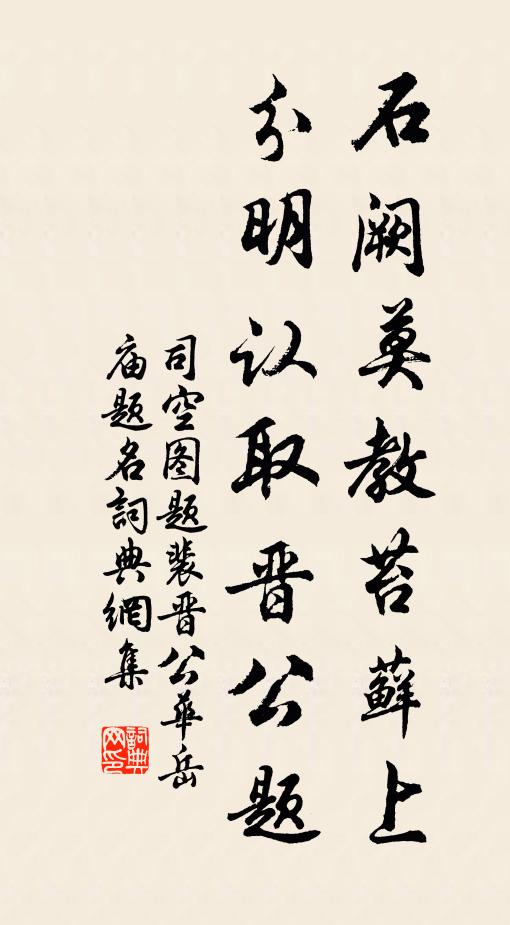 石阙莫教苔藓上
分明认取晋公题
司空图题裴晋公华岳
庙题名詞典網集
詞典网印